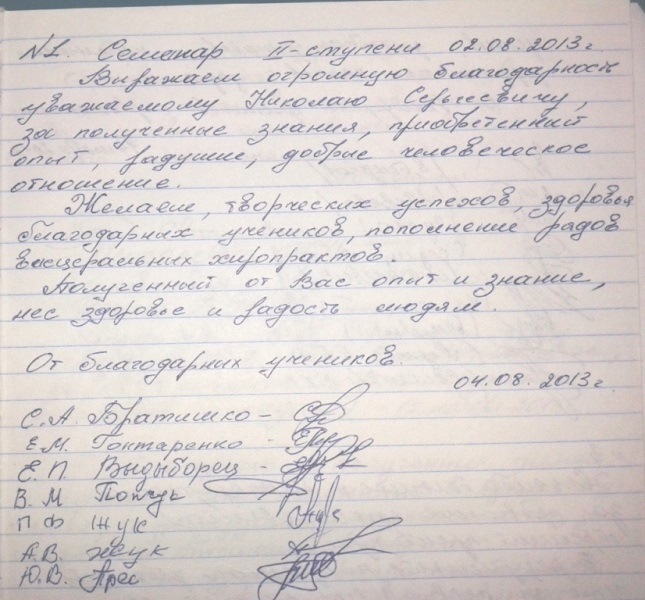 N1. Семенар II-ступени 02.08.2013г
Виражаем огромную благодарность
уважаемому Николаю Сергеевичу,
за полученные знания, приобретенний
опыт, радушие, доброе человеческое
отношение.
Желаем, творческих успехов, здоровья
благодарных учеников, пополнение рядов
висцеральных хиропрактов.
Полученный от Вас опыт и знание,
нес здоровье и радость людям.
От благодарних учеников.
04.08.2013г.
С.А. Братишко -
Е.М. Гонтаренко -
Е.П. Выдыборец -
В.М
П Ф Жук
А.В. Жук
Ю.В. Прес